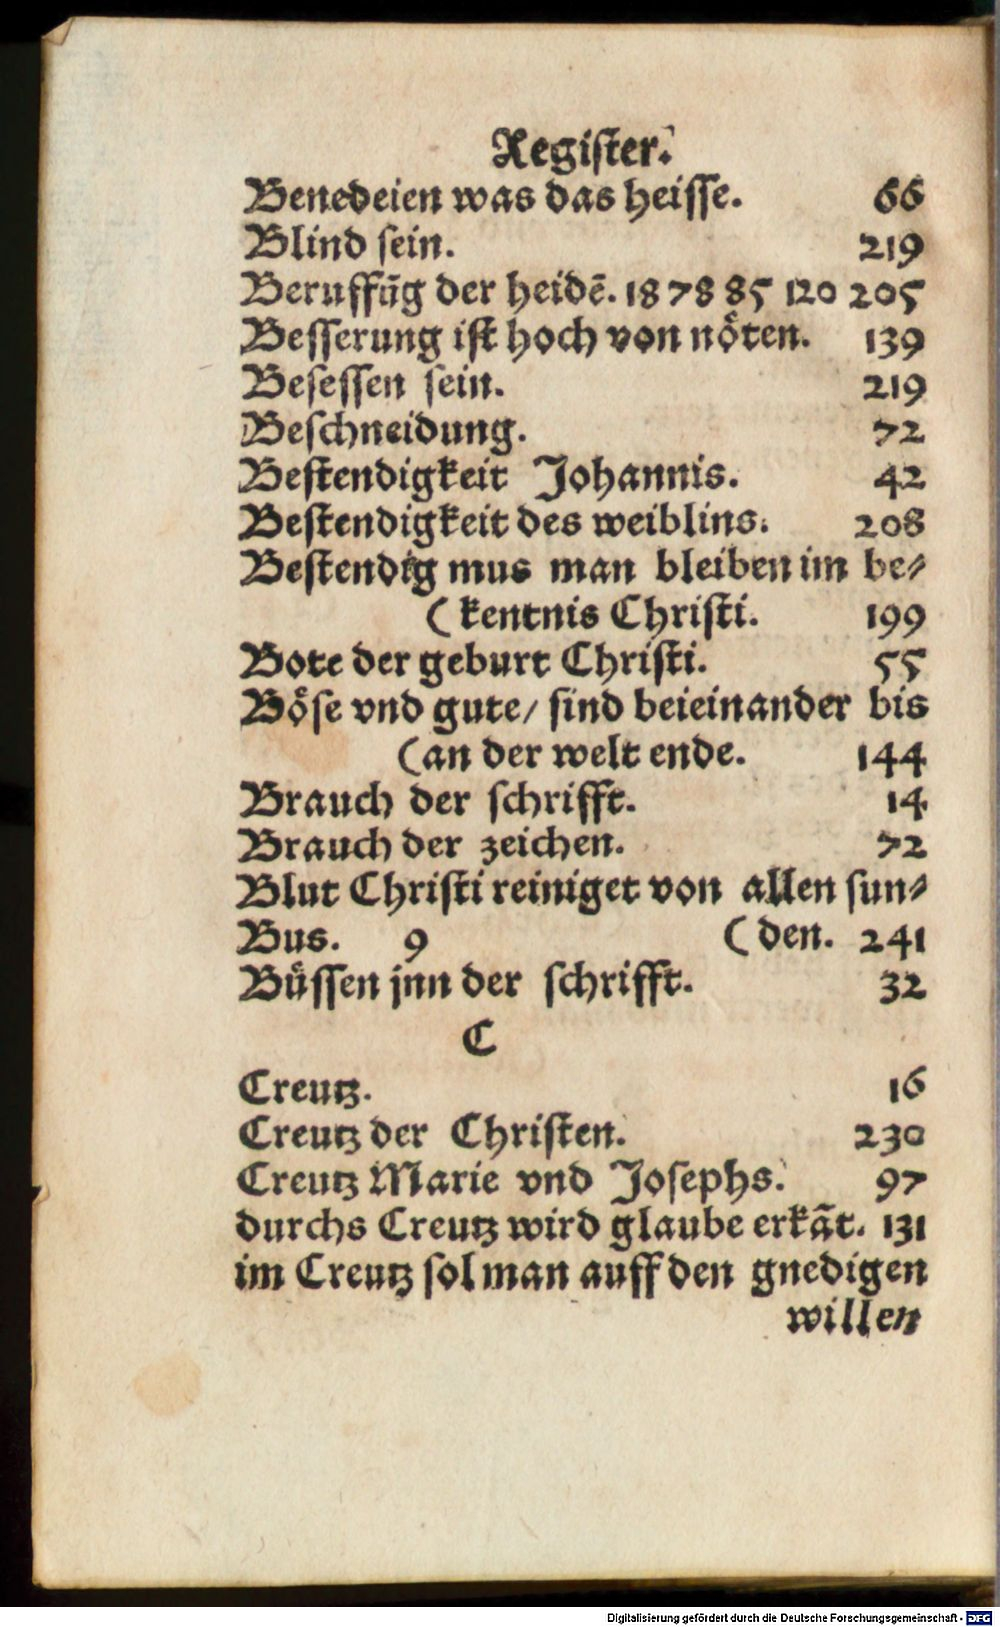 Register.
Benedeien was das heisse. 66
Blind sein. 219
Beruffūg der heidē. 18 78 85 120 205
Besserung ist hoch von nöten. 139
Besessen sein. 219
Beschneidung. 72
Bestendigkeit Johannis. 42
Bestendigkeit des weiblins. 208
Bestendig mus man bleiben im be⸗
(kentnis Christi. 199
Bote der geburt Christi. 55
Böse vnd gute/ sind beieinander bis
(an der welt ende. 144
Brauch der schrifft. 14
Brauch der zeichen. 72
Blut Christi reiniget von allen sun⸗
Bus. 9 (den. 241
Büssen jnn der schrifft. 32
C
Creutz. 16
Creutz der Christen. 230
Creutz Marie vnd Josephs. 97
durchs Creutz wird glaube erkāt. 131
im Creutz sol man auff den gnedigen
willen
Digitalisierung gefördert durch die Deutsche Forschungsgemeinschaft - DFG